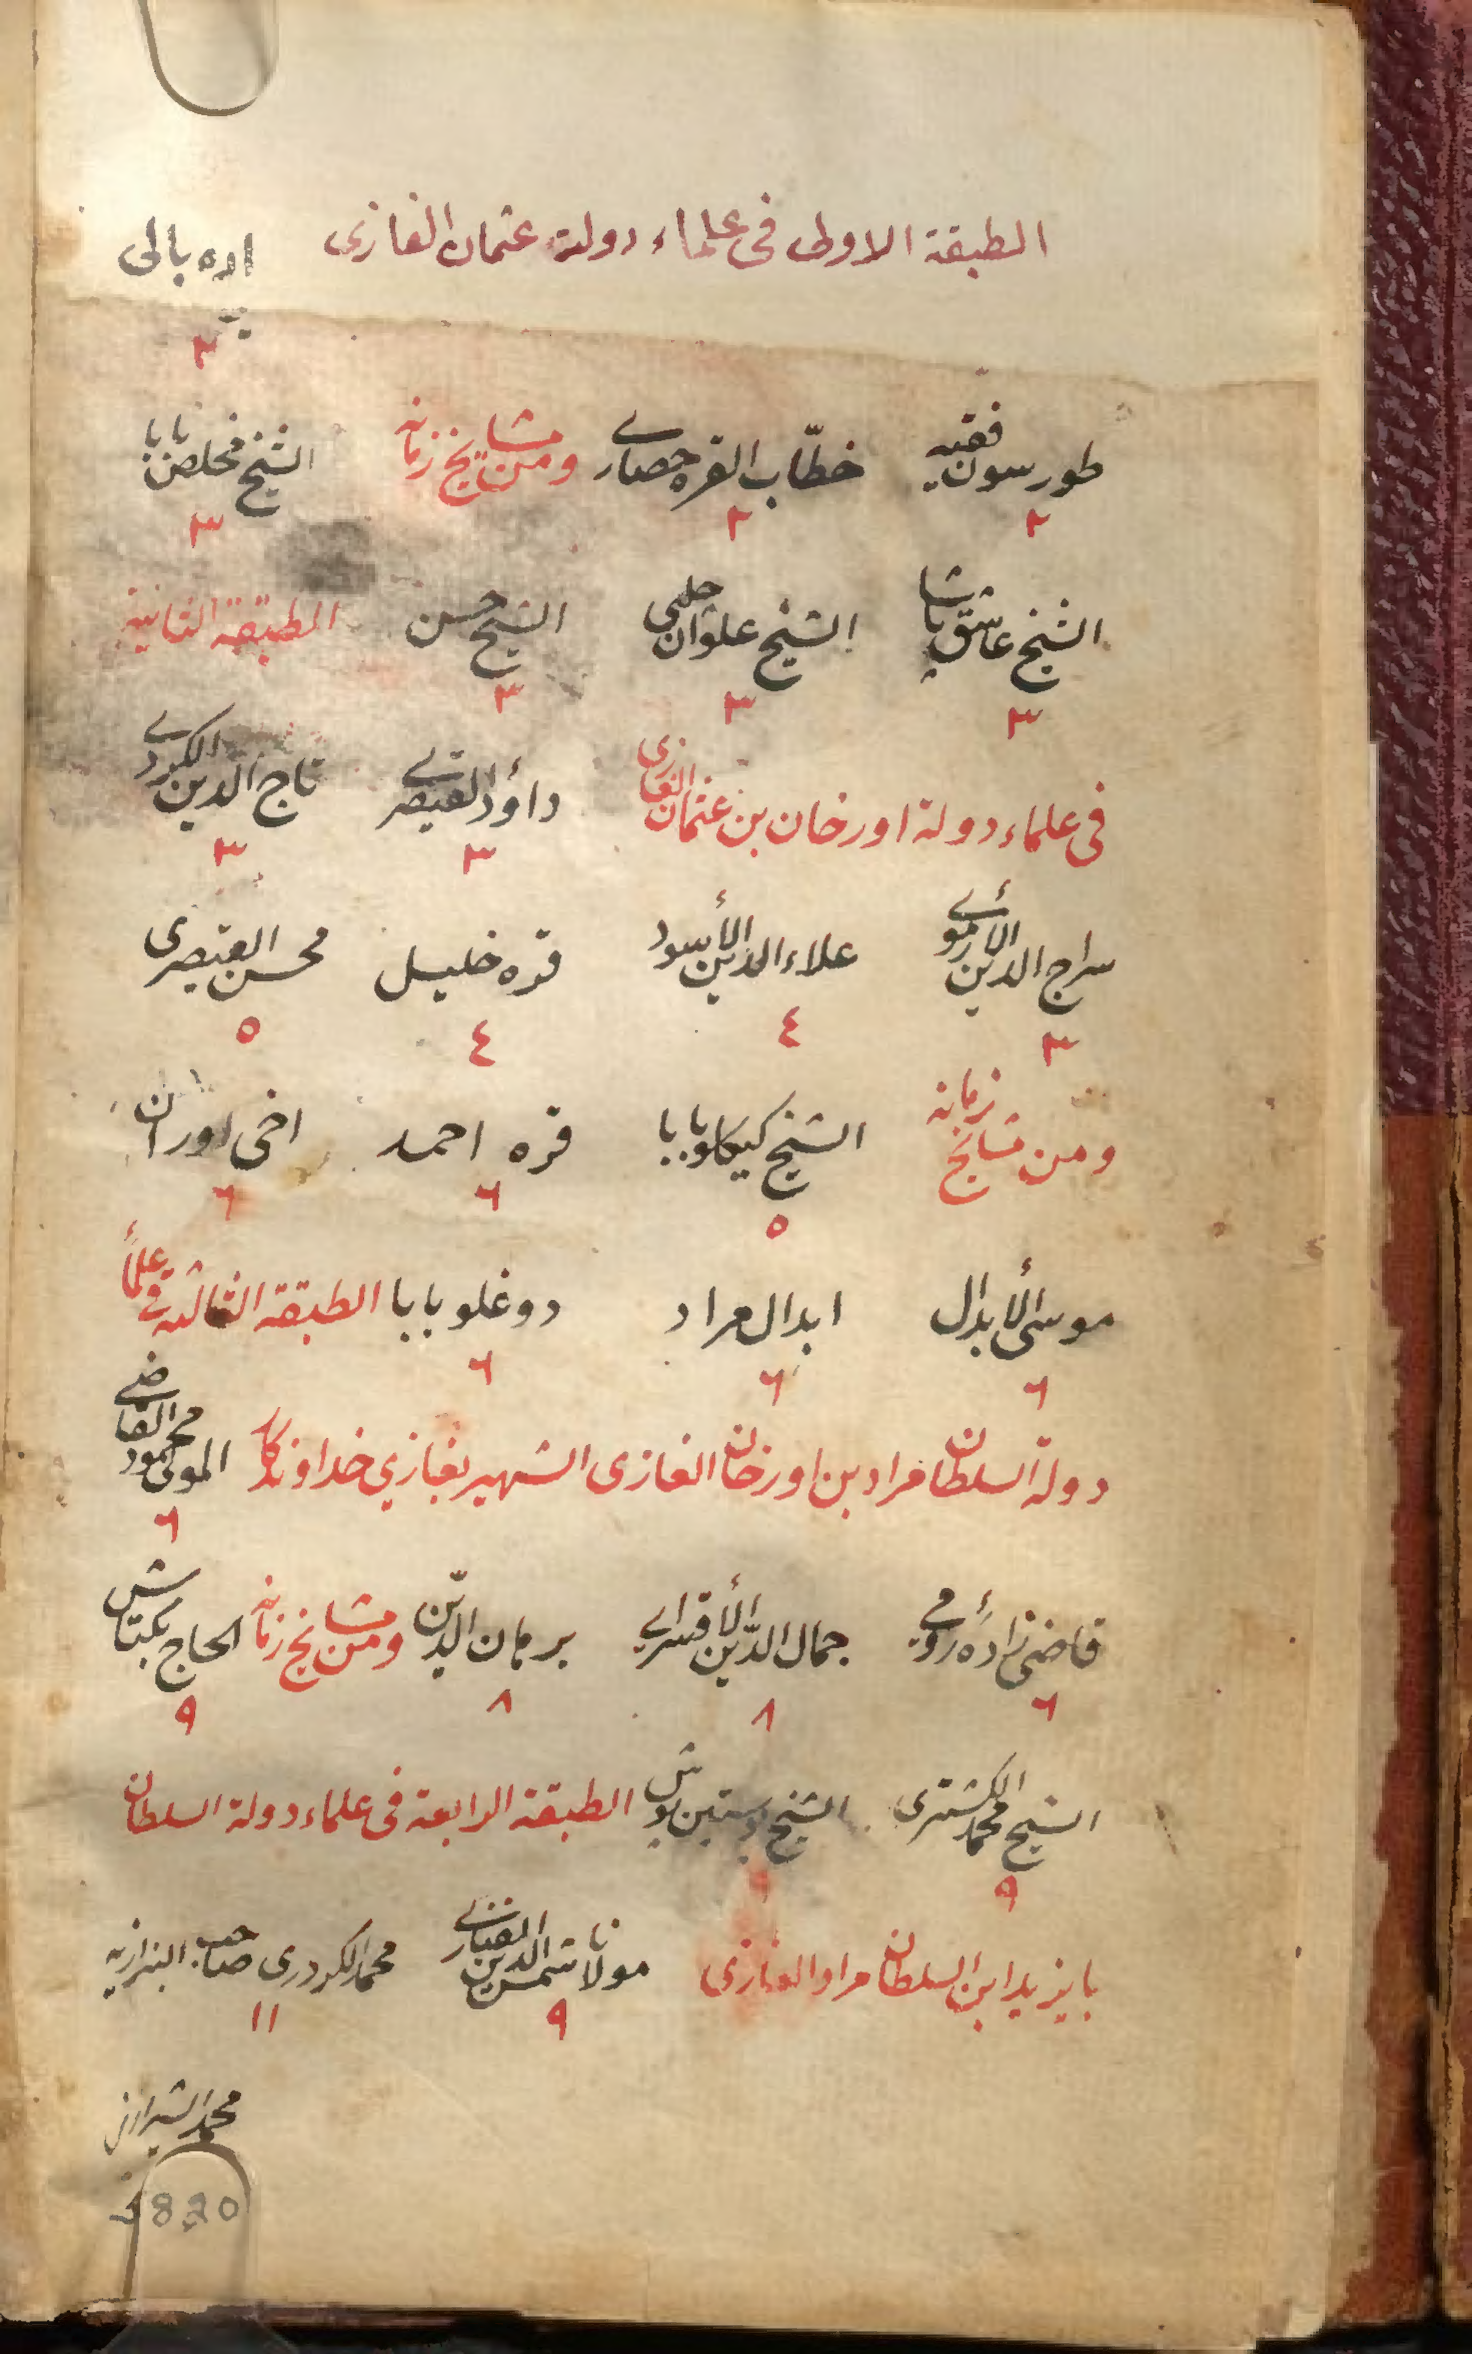 الطبقة الاولى فى علماء دولة عثمان الغازى اده بالى
٢
طورسون فقيه خطّاب القره حصارے ومن مشايخ زمانه الشيخ مخلص بابا
٢ ٢ ٣
الشيخ عاشق پاشا الشيخ علوان چلبى الشيخ حسن الطبقة الثانية
٣ ٣ ٣
فى علماء دولة اورخان بن عثمان الغازى داؤد القيصرے تاج الدين الكردے
٣ ٣
سراج الدين الأرموے علاء الدين الأسود قره خليل محسن القيصرى
٣ ٤ ٤ ٥
ومن مشايخ زمانه الشيخ كيكلوبابا قره احمد اخى اوران
٥ ٦ ٦
موسى الأبدال ابدال مراد دوغلو بابا الطبقة الثالثة فى علماء
٦ ٦ ٦
دولة السلطان مراد بن اورخان الغازى الشهير بغازي خداوندكار المولى محمود القاضے
٦
قاضى زاده رومي جمال الدّين الأقسراے برهان الدّين ومن مشايخ زمانه الحاج بكتاش
٦ ٨ ٨ ٩
الشيخ محمد الكشترى الشيخ پوستين پوش الطبقة الرابعة فى علماء دولة السلطان
٩ ٩
بايزيد ابن السلطان مراد الغازى مولانا شمس الدين الفنارے محمد الكردرى صاحب البزازيه
٩ ١١
محمد الشيرازى
820